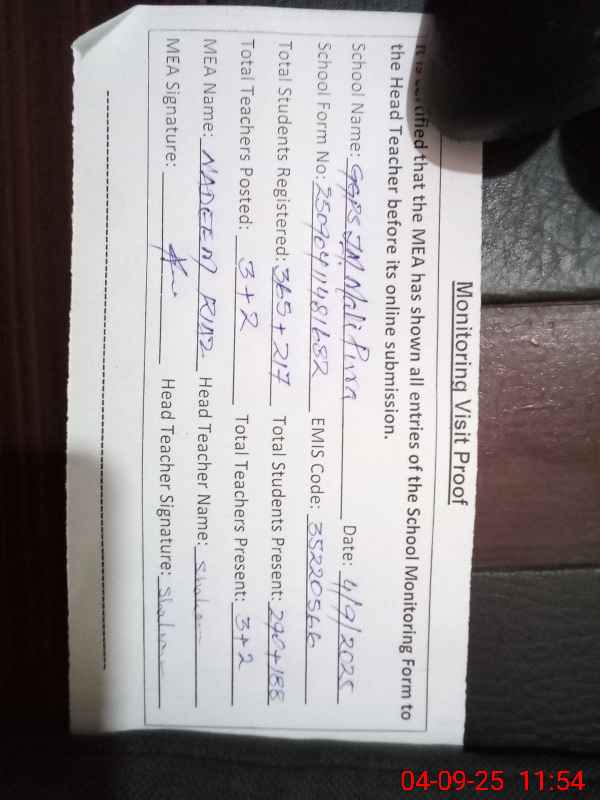 Monitoring Visit Proof
certified that the MEA has shown all entries of the School Monitoring Form to
the Head Teacher before its online submission.
School Name: GGPS JM Mali Pura Date: 4/9/2025
School Form No: EMIS Code: 35220566
Total Students Registered: 365+217 Total Students Present: 290+188
Total Teachers Posted: 3+2 Total Teachers Present: 3+2
MEA Name: NADEEM RIAZ Head Teacher Name:
MEA Signature: Head Teacher Signature:
04-09-25 11:54